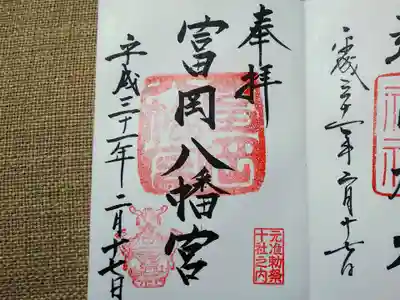 奉拝
元准勅祭
十社之内
富岡八幡宮
平成三十一年二月十七日
平成三十一年二月十七日